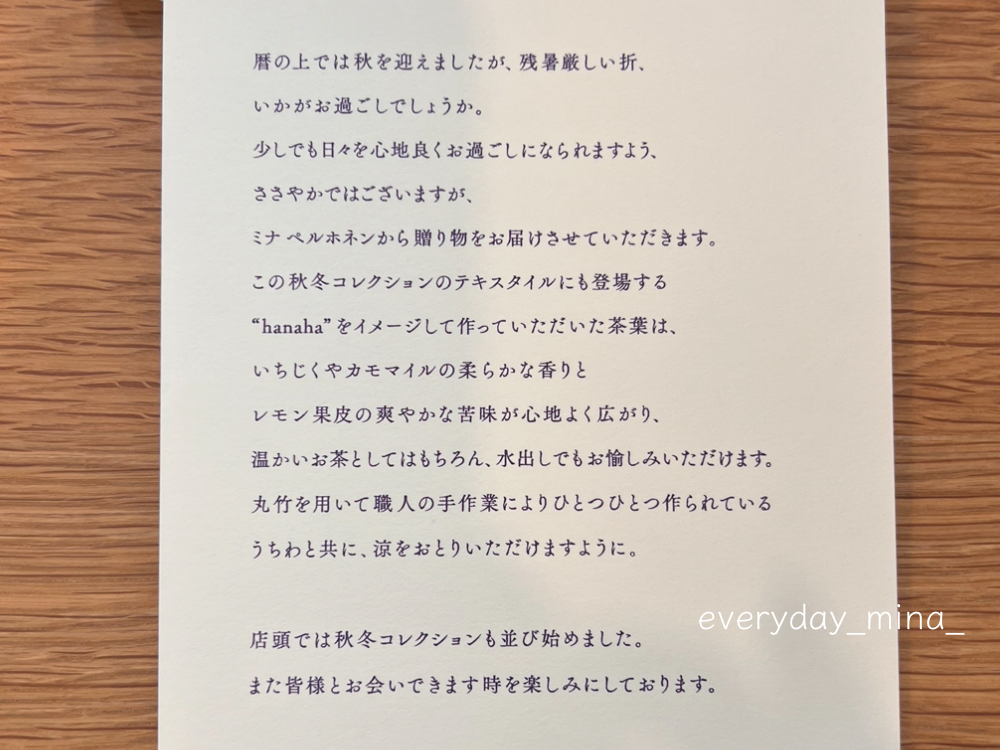 暦の上では秋を迎えましたが、残暑厳しい折、
いかがお過ごしでしょうか。
少しでも日々を心地良くお過ごしになられますよう、
ささやかではございますが、
ミナ ペルホネンから贈り物をお届けさせていただきます。
この秋冬コレクションのテキスタイルにも登場する
“hanaha”をイメージして作っていただいた茶葉は、
いちじくやカモマイルの柔らかな香りと
レモン果皮の爽やかな苦味が心地よく広がり、
温かいお茶としてはもちろん、水出しでもお愉しみいただけます。
丸竹を用いて職人の手作業によりひとつひとつ作られている
うちわと共に、涼をおとりいただけますように。
店頭では秋冬コレクションも並び始めました。
また皆様とお会いできます時を楽しみにしております。
everyday_mina_